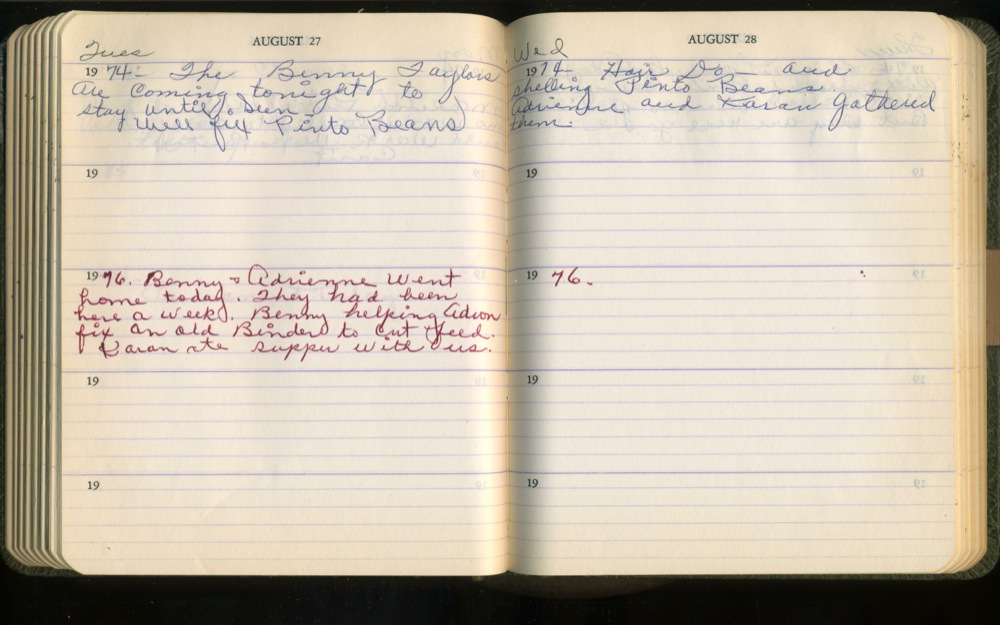 AUGUST 27
Tues
1974- The Benny Taylors
are coming tonight to
stay until Sun.
will fix Pinto Beans
19
1976. Benny & Adrienne went
home today. They had been
here a week. Benny helping Adron
fix an old Binder to cut feed.
Karan ate supper with us.
19
19
AUGUST 28
Wed
1974 Hair Do - and
shelling Pinto Beans
Adrienne and Karan Gathered
them.
19
19 76.
19
19